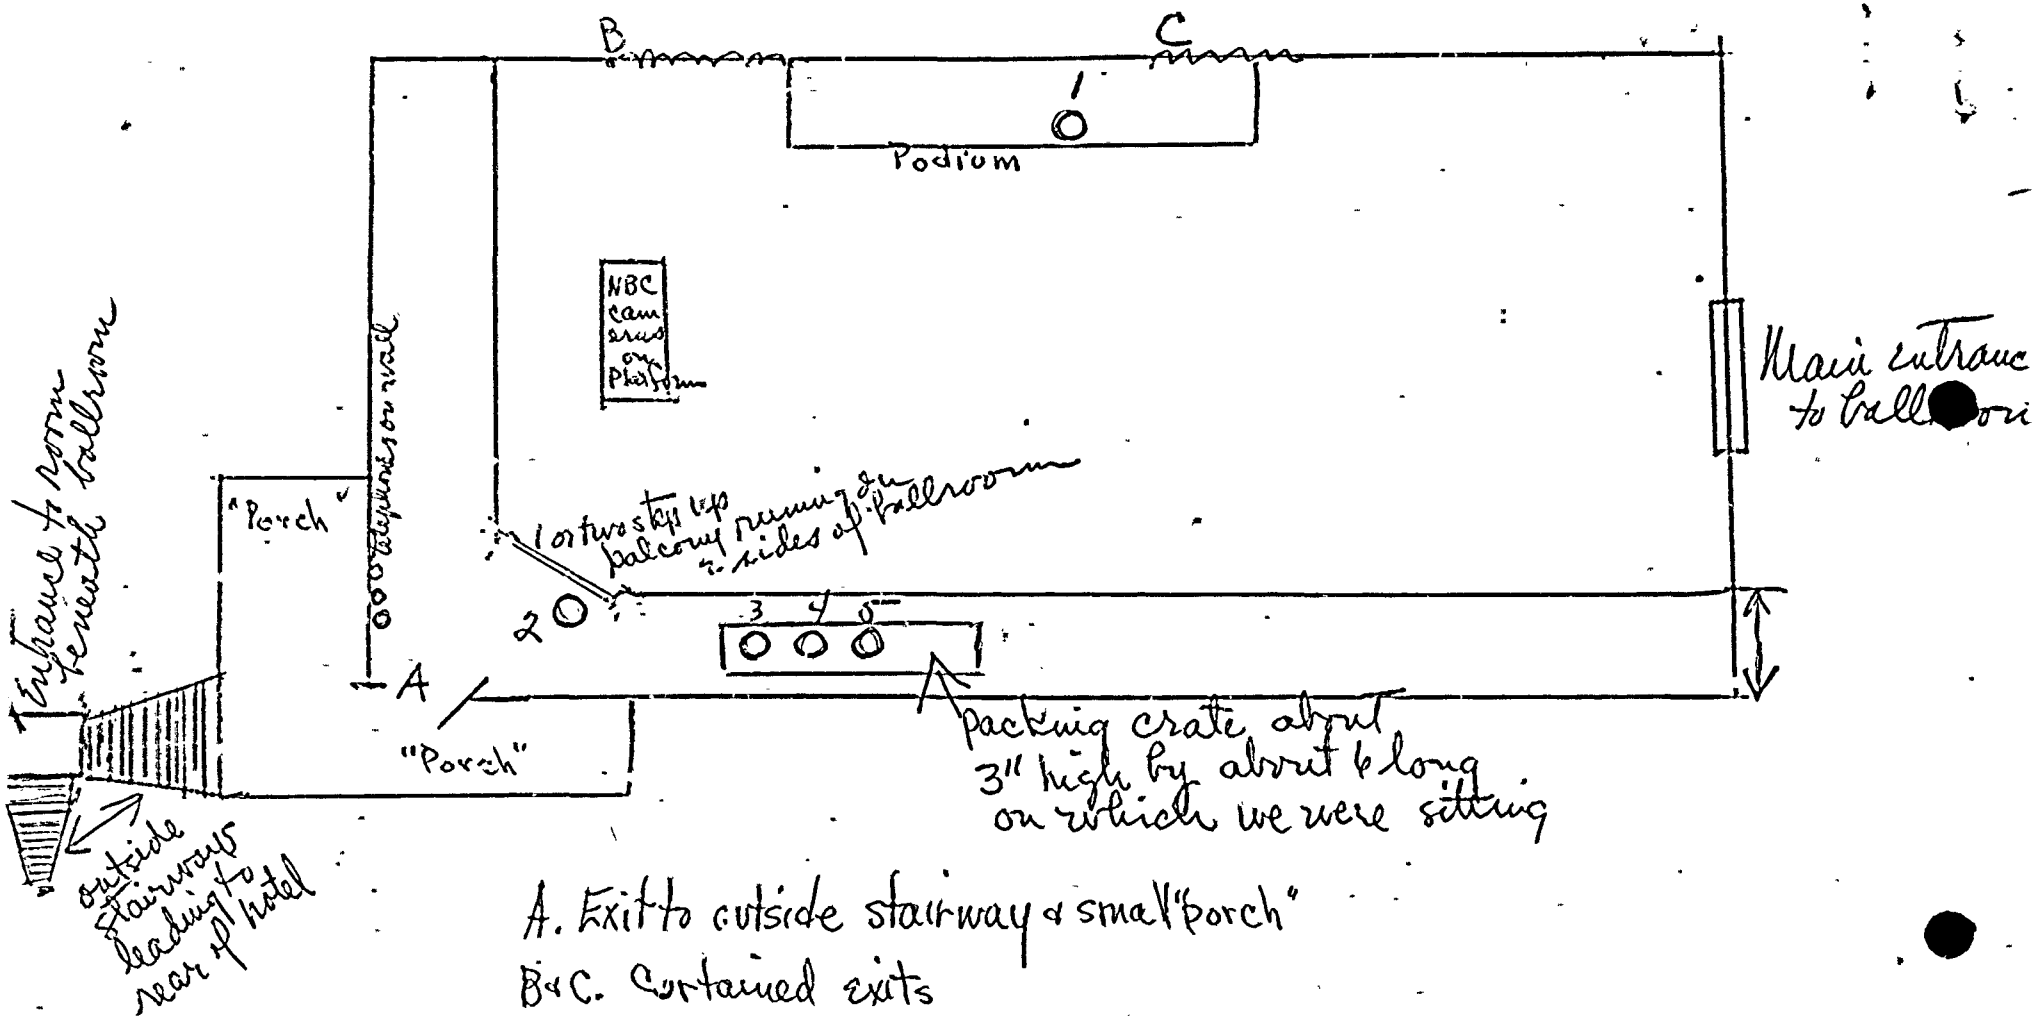 B
C
1
Podium
NBC
cam
eras
on
Platform
Telephones on wall
Main entranc
to ball oom
Entrance to room
beneath ballroom
"Porch"
1 or two steps up
balcony running on
2 sides of ballroom
2
3 4 5
A
"Porch"
packing crate about
3" high by about 6 long
on which we were sitting
outside
stairways
leading to
rear of hotel
A. Exit to outside stairway & small "porch"
B & C. Curtained exits